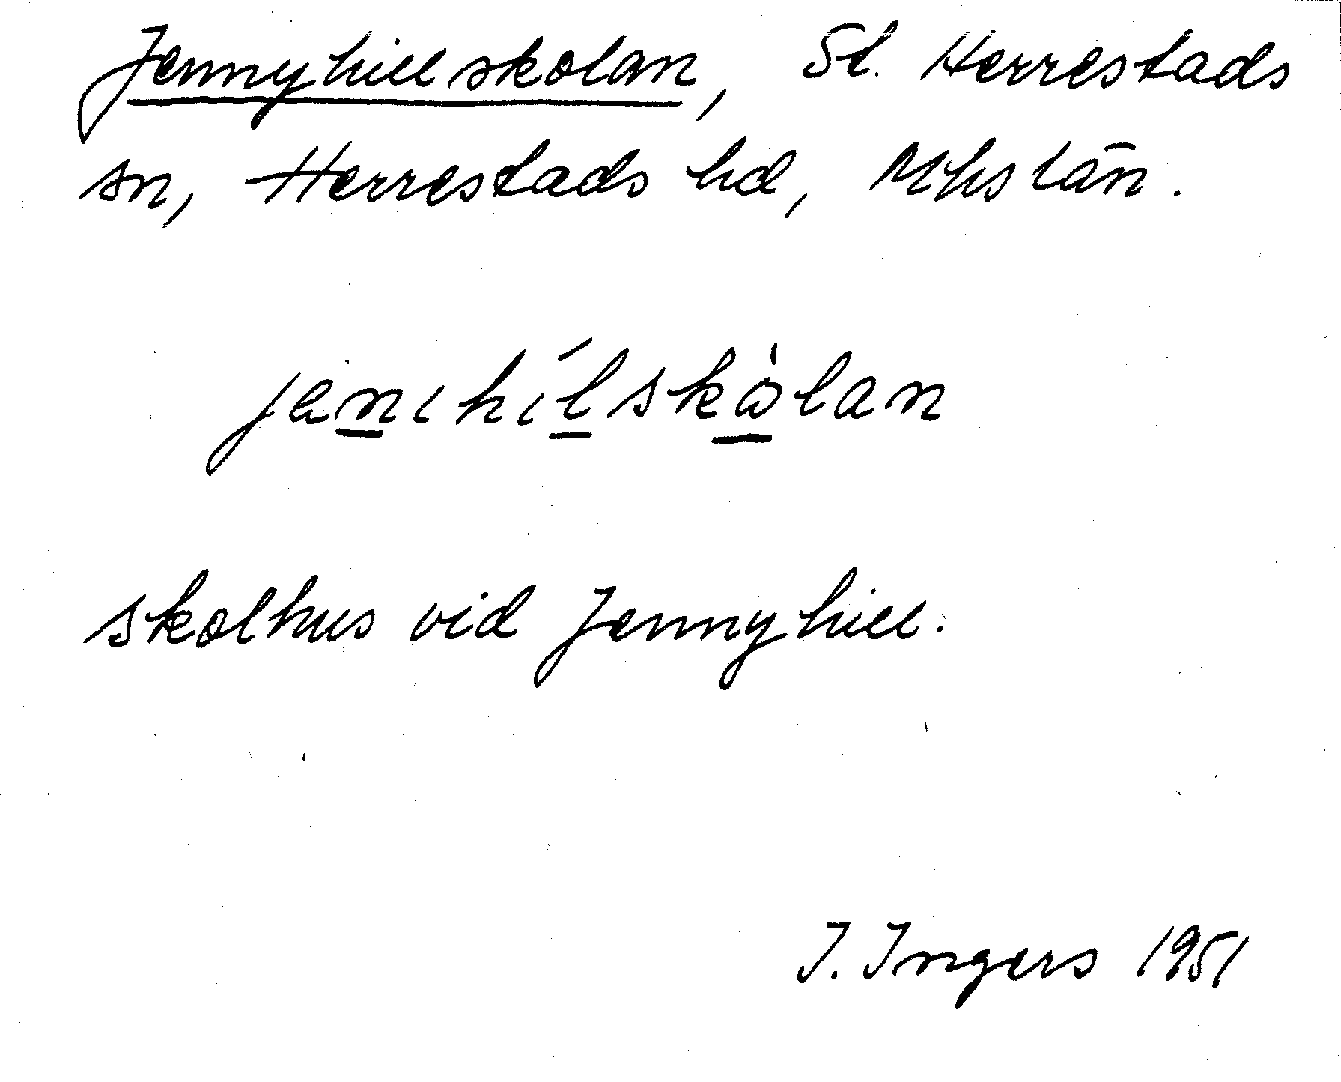 Jennyhillskolan, St. Herrestads
sn, Herrestads hd, Mhs län.
jenihílskòlan
skolhus vid Jennyhill.
I. Ingers 1951